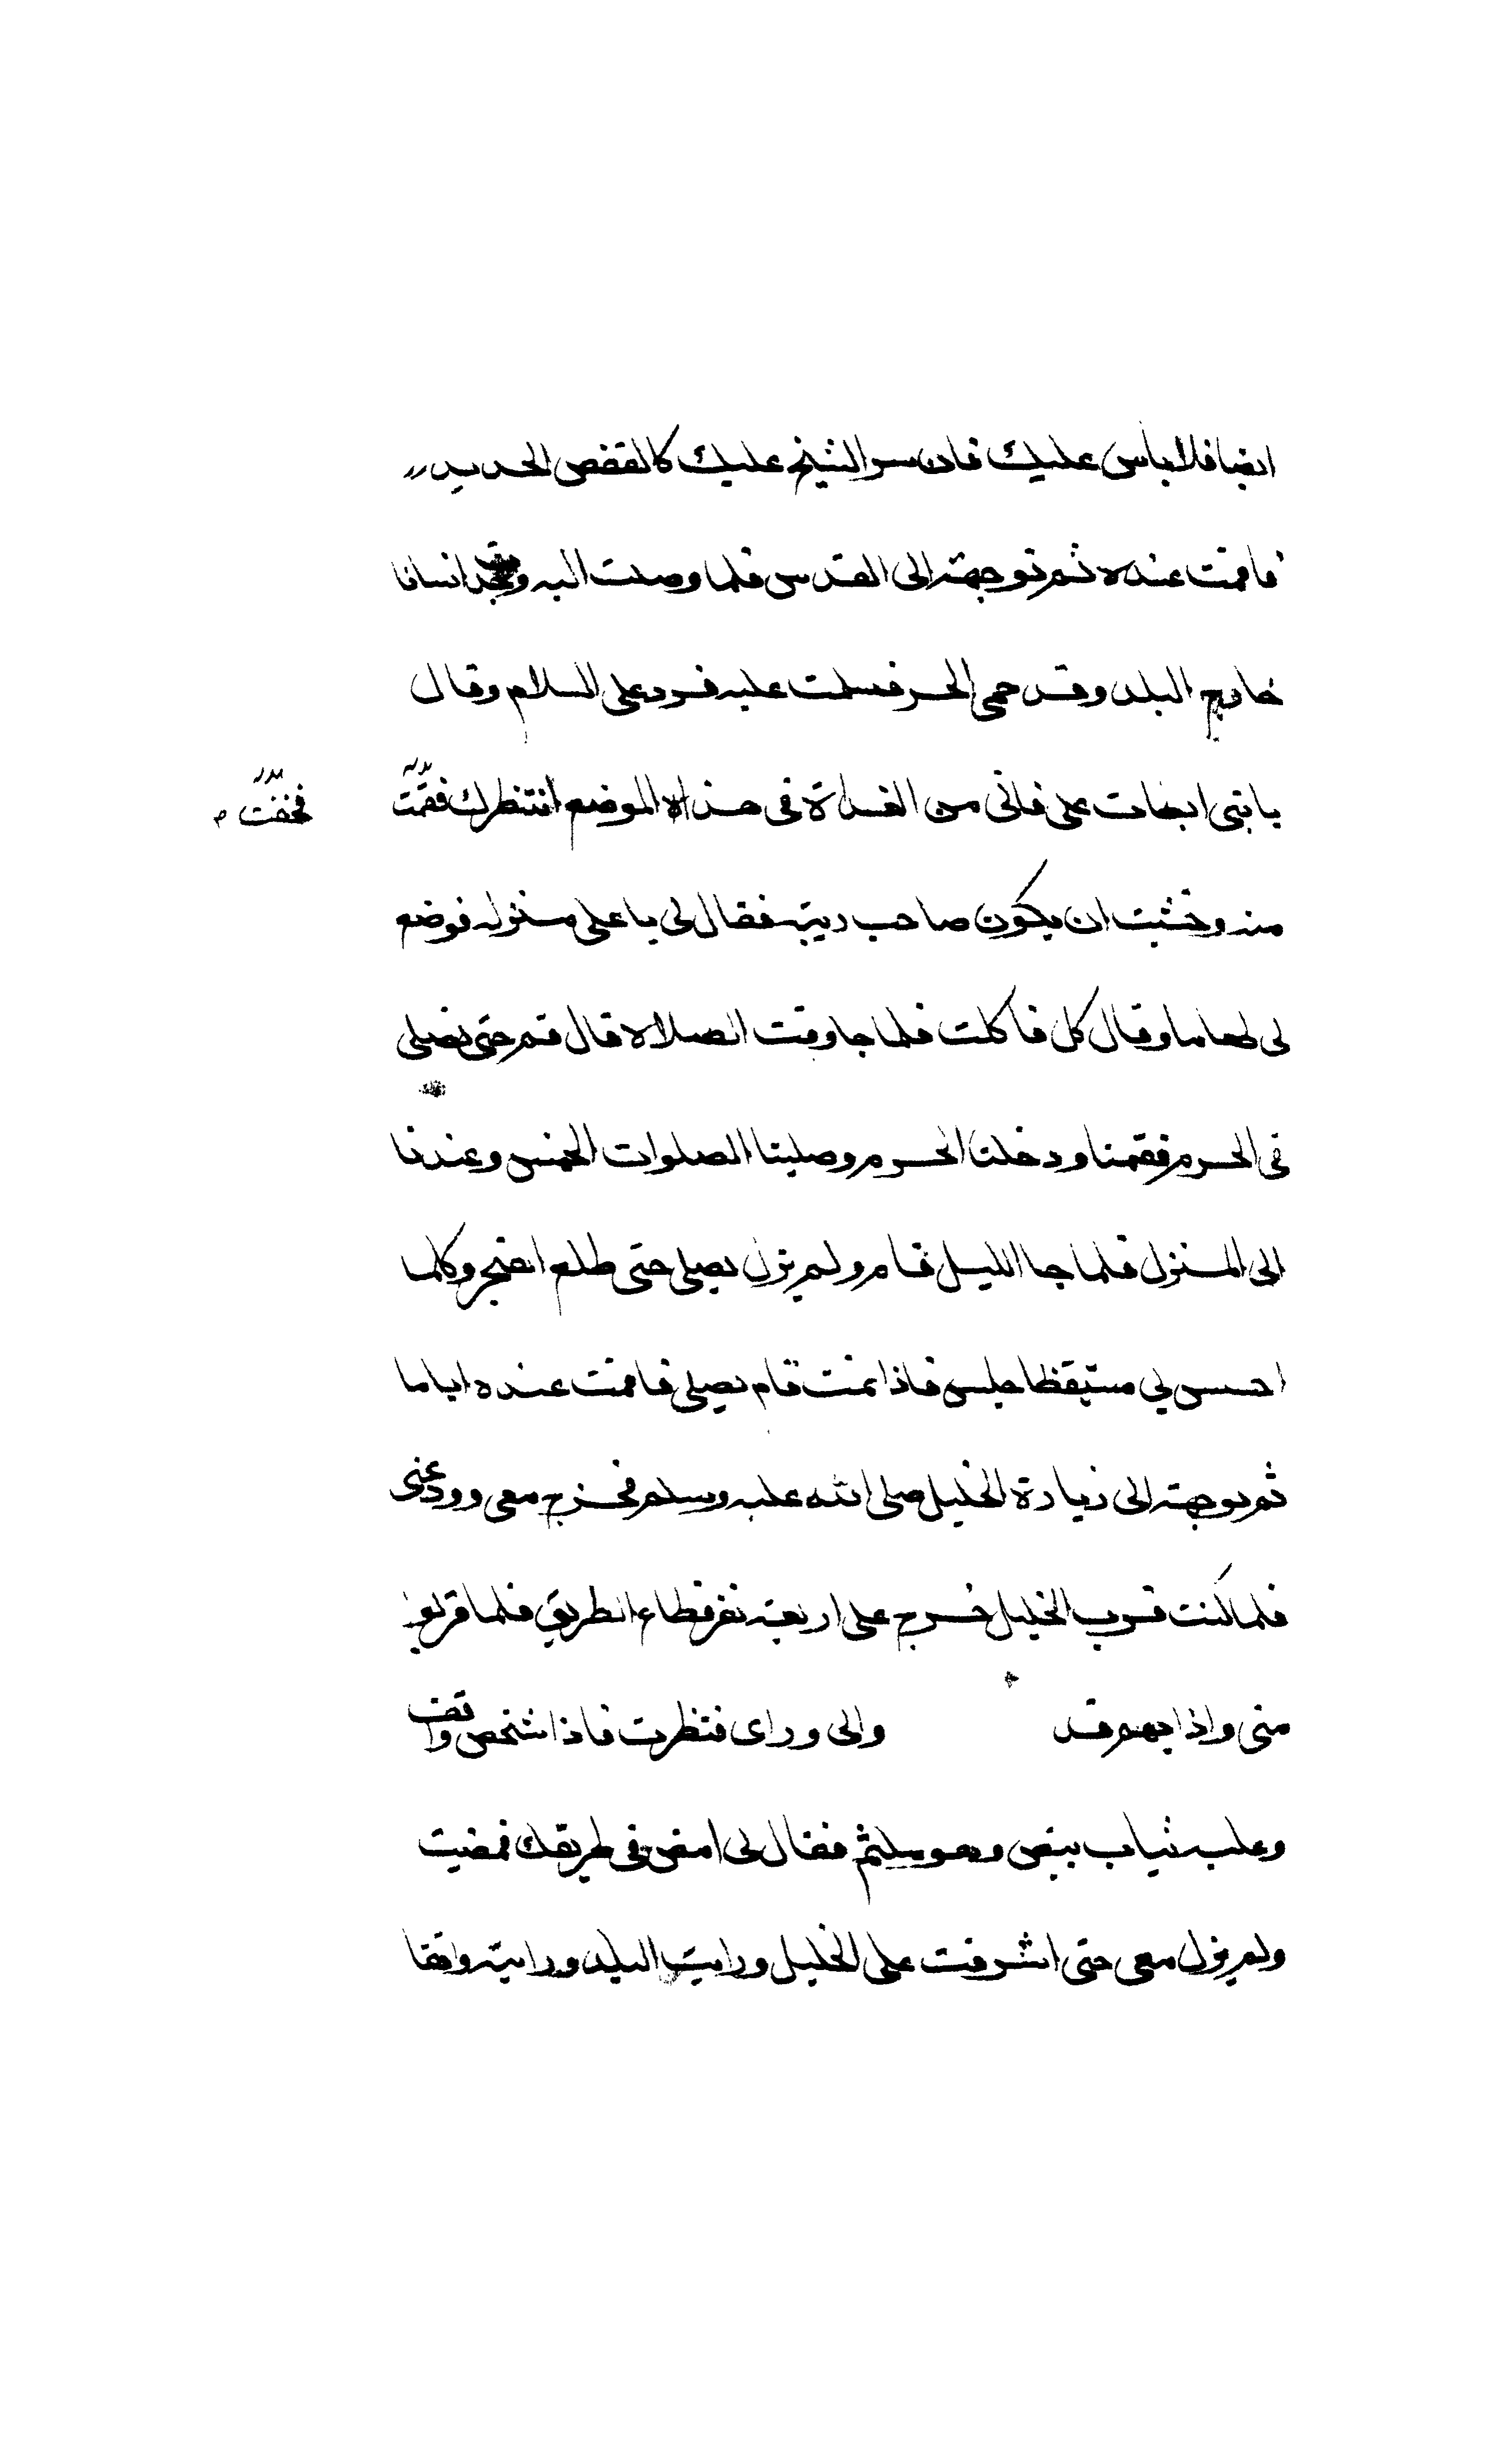 ايضا فلا باس عليك فان سر الشيخ عليك كالقفص الحديد
فاقمت عنده ثم توجهت الى القدس فلما وصلت اليه وجد انسانا
خارج البلد وقد حمى الحر فسلمت عليه فرد على السلام وقال
يابنى ابطات على فانى من الغداة فى هذا الموضع انتظرك فقمت
فخفت م
منه وخشيت ان يكون صاحب ريبة فقال لى يا على منزله فوضع
لى طعاما وقال كل فاكلت فلما جا وقت الصلاه قال قم حتى نصلى
فى الحرم فقمنا ودخلنا الحرم وصلينا الصلوات الخمس وعندنا
الى المنزل فلما جا الليل قام ولم يزل يصلى حتى طلع الفجر وكلما
احسس بى مستيقظا جلس فاذا نمت قام يصلى فاقمت عنده اياما
ثم توجهت الى زيارة الخليل صلى الله عليه وسلم فخرج معى وودعنى
فلما كنت قرب الخليل خرج على اربعة نفر قطاع الطريق فلما قربو
منى واذا بهم قد والى وراى فنظرت فاذا شخص واقف
وعليه ثياب بيض وهو ملثم فقال لى امض فى طريقك فمضيت
ولم يزل معى حتى اشرفت على الخليل ورايت البلد ورايته واقفا